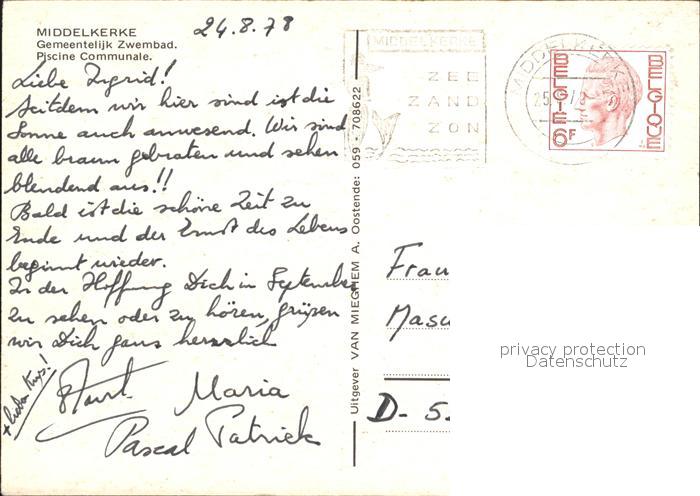 MIDDELKERKE
Gemeentelijk Zwembad.
Piscine Communale.
24.8.78
Liebe Ingrid!
Seitdem wir hier sind ist die
Sonne auch anwesend. Wir sind
alle braun gebraten und sehen
blendend aus!!
Bald ist die schöne Zeit zu
Ende und der Ernst des Lebens
beginnt wieder.
In der Hoffnung Dich in September
zu sehen oder zu hören, grüßen
wir Dich ganz herzlich
Maria
Pascal Patrick
Uitgever VAN MIEGHEM A. Oostende: 059 - 708622
MIDDELKERKE
ZEE
ZAND
ZON
MIDDELKERKE
BELGIE 6F
BELGIQUE
Frau
Masu
D- 5.
privacy protection
Datenschutz